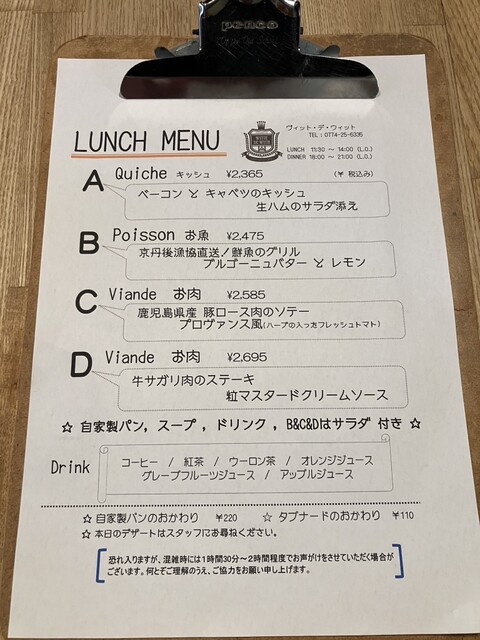 penco
LUNCH MENU
ヴィット・デ・ウィット
TEL:0774-25-6335
LUNCH 11:30 ～ 14:00 (L.O.)
DINNER 18:00 ～ 21:00 (L.O.)
A Quiche キッシュ ¥2,365 (¥ 税込み)
ベーコン と キャベツのキッシュ
生ハムのサラダ添え
B Poisson お魚 ¥2,475
京丹後漁協直送！鮮魚のグリル
ブルゴーニュバター と レモン
C Viande お肉 ¥2,585
鹿児島県産 豚ロース肉のソテー
プロヴァンス風(ハーブの入ったフレッシュトマト)
D Viande お肉 ¥2,695
牛サガリ肉のステーキ
粒マスタードクリームソース
☆ 自家製パン, スープ , ドリンク , B&C&Dはサラダ 付き ☆
Drink
コーヒー / 紅茶 / ウーロン茶 / オレンジジュース
グレープフルーツジュース / アップルジュース
☆ 自家製パンのおかわり ¥220 ☆ タプナードのおかわり ¥110
☆ 本日のデザートはスタッフにお尋ねください。
恐れ入りますが、混雑時には1時間30分～2時間程度でお声がけをさせていただく場合が
ございます。何とぞご理解のうえ、ご協力をお願い申し上げます。